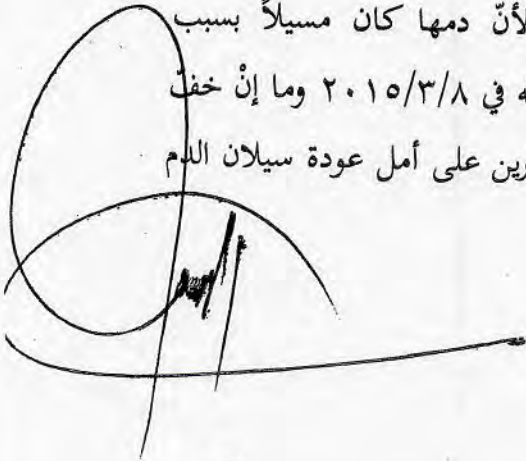 لأنّ دمها كان مسيلاً بسبب
ه في ٢٠١٥/٣/٨ وما إنْ خفّ
رين على أمل عودة سيلان الدم